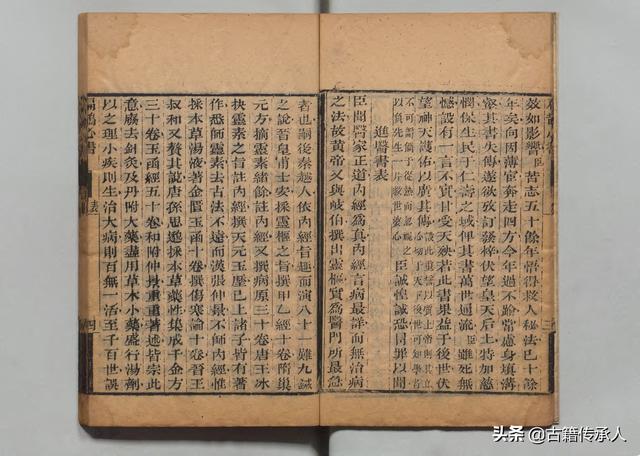 效如影響臣苦志五十餘年悟得救人秘法已十餘
年矣向因薄宦奔走四方今年過不踰當慮身填溝
壑其書失傳遂欲攷訂發梓伏望皇天后土特加慈
憫保生民于仁壽之域俾其書萬世通流臣雖死無
憾設有一言不實甘受天殃若此書果益于後世伏
望神天護佑以廣其傳
以負先生一片救世婆心
臣誠惶誠恐同罪以聞
進醫書表
臣聞醫家正道內經為真內經言病最詳而無治病
之法故黃帝又與岐伯撰出靈樞實為醫門所最急
者也嗣後秦越人依內經旨趣而演八十一難九鍼
之說晉皇甫士安採靈樞之旨撰甲乙經十卷隋巢
元方摘靈素緒餘註內經又撰病原三十卷唐王冰
抉靈素之旨註內經撰天元玉歷已上諸子皆有著
作悉師靈素去古法不遠而漢張仲景不師內經惟
採本草湯液著金匱玉函十卷撰傷寒論十卷晉王
叔和又贅其說唐孫思邈採本草藥性集成千金方
三十卷玉函經五十卷和附仲景重重著述皆宗此
意廢去針灸及丹附大藥盡用草木小藥盛行湯劑
以之理小疾則生治大病則百無一活至千百世誤
扁鵲心書
表
四
头条 @古籍传承人